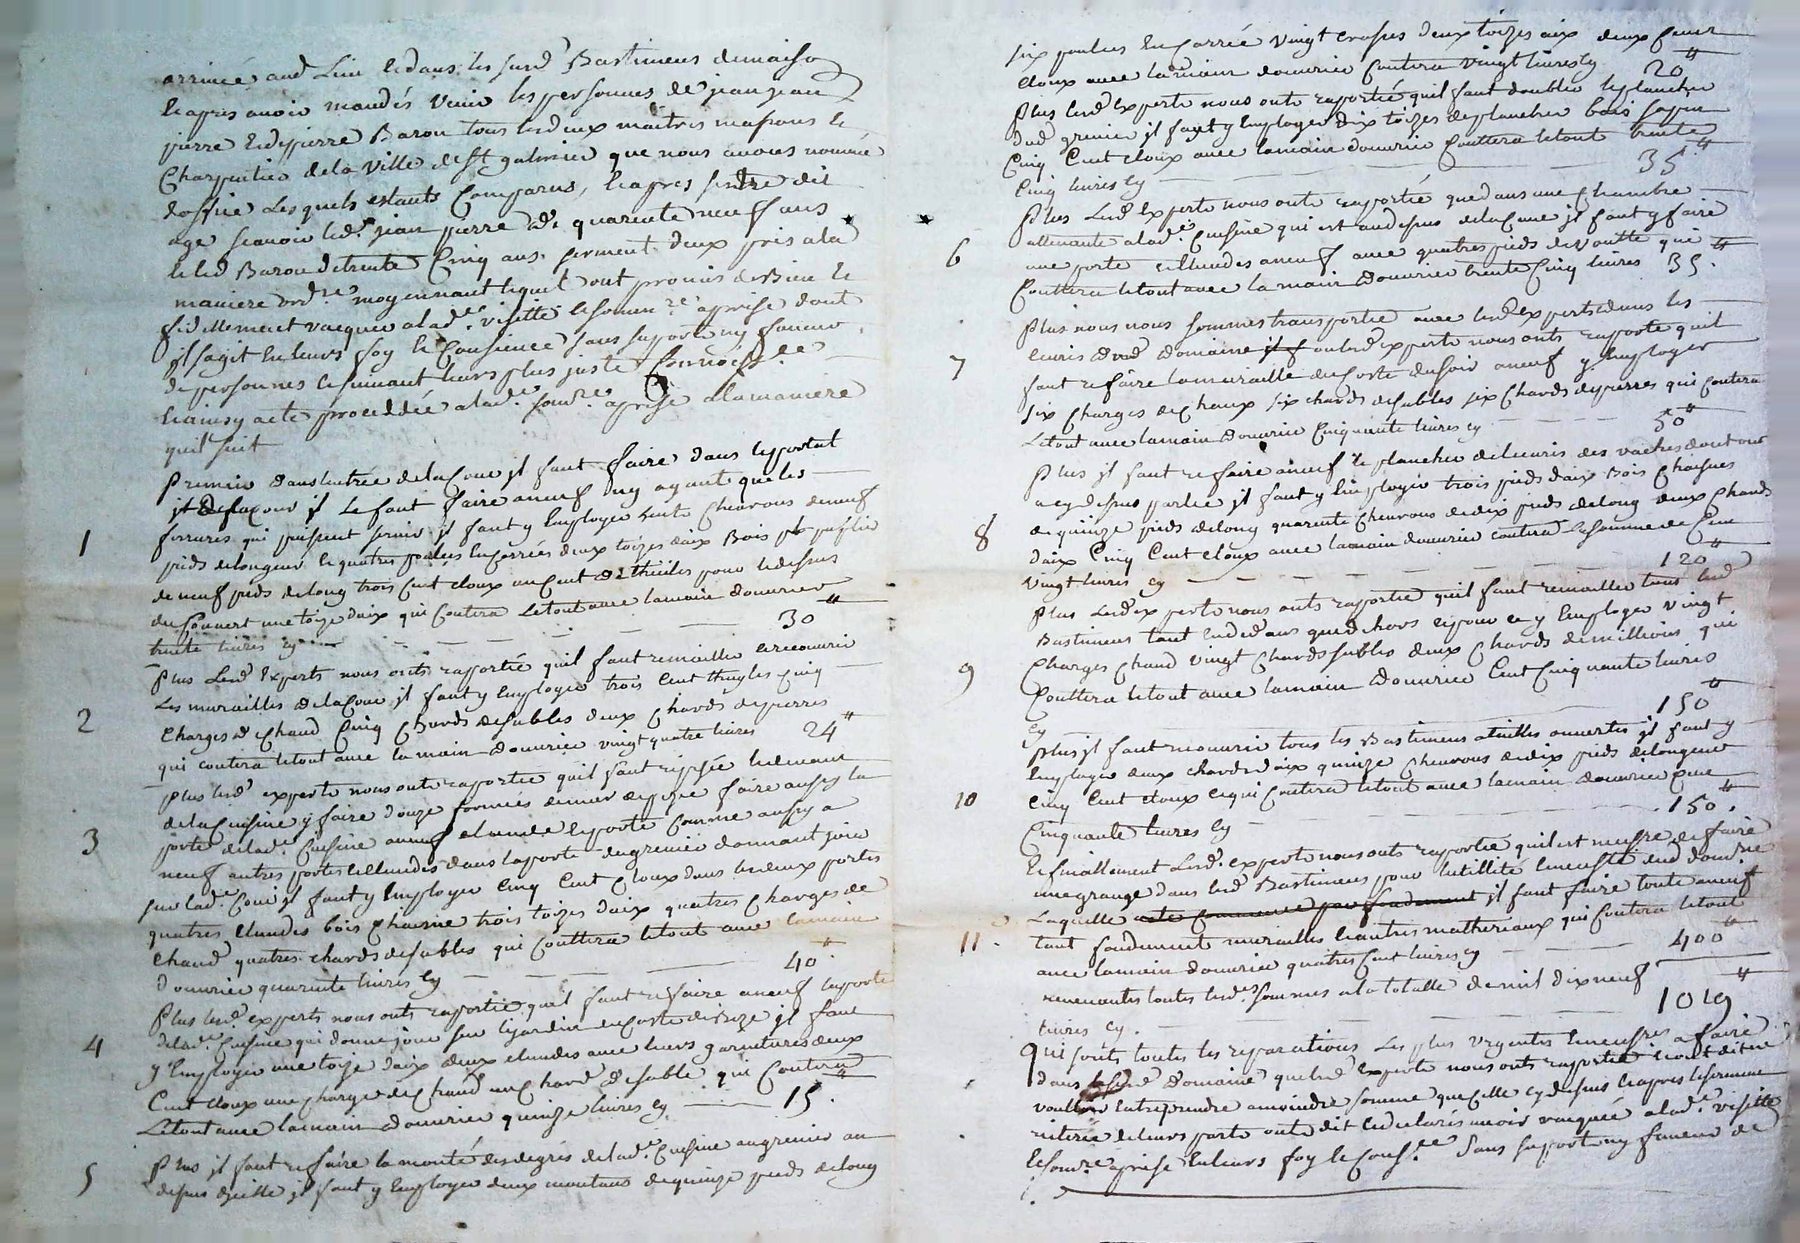 arrivée aud. Lieu et dans les susd. Bastimens de maison
et apres avoir mandés venir les personnes de jean jean
pierre et de pierre Baron tous les deux maîtres massons et
Charpentier de la ville de St galmier que nous avons nommé
d'office Lesquels estants Comparus, et apres s'estre dit
age scavoir led. jean pierre de quarente neuf ans
et led Baron de trente Cinq ans, serment deux pris a la
maniere ord.re moyennant lequel ont promis de Bien et
fidellement vacquer a lad.e visitte et somm.re aprise dont
il sagit en leurs foy et Consience sans suport ny faveur
de personnes et suivant leurs plus juste Connoiss.ce
et ainsy a été proceddée a lad.e som.re aprise a la maniere
qu'il suit
Premier dans lentrée de la Cour il faut faire dans le portal
de la cour il le faut faire a neuf ny ayant que les
1 ferrures qui puissent servir il faut y Employer huit Chevrons de neuf
pieds de longeur et quatres poulies en carrées deux toizes daix Bois
de neuf pieds de long trois Cent cloux un Cent de thuiles pour le dessus
du Couvert une toize daix qui Coutera le tout avec la main douvrier
trente livres cy 30"
Plus Lesd. Experts nous onts raportée quil faut remailler et recouvrir
2 Les murailles de la Cour il faut y Employer trois Cent thuyles Cinq
Charges de chaud Cinq Chards de sables deux chards de pierres
qui coutera le tout avec la main douvrier vingt quatre livres 24"
plus lesd. experts nous onts raportée quil faut
de la Cuisine y faire douze faire aussy la
3 porte de lad.e Cuisine a neuf et la porte comme aussy a
neuf autres portes et dans la porte du grenier donnant jour
sur lad.e Cour il faut y Employer Cinq Cent Cloux dans les deux portes
quatres bois Chaisne trois toizes daix quatres Charges de
Chaud quatres chards de sables qui Couttera le tout avec la main
douvrier quarente livres Cy 40"
Plus lesd. experts nous onts raportée quil faut refaire a neuf la porte
4 de lad.e Cuisine qui donne jour sur le jardin du Costé de Bize il faut
y Employer une toize daix deux avec leurs garnitures deux
Cent Cloux une charge de Chaud un Chard de sable qui Coutera
Le tout avec la main douvrier quinze livres Cy 15"
5 Plus il faut refaire la monté des degrés de lad.e Cuisine au grenier au
dessus il faut y Employer deux montans de quinze pieds de long
six poulies en carrée vingt deux toizes aix deux Cent
cloux avec la main douvrier Coutera vingt livres Cy 20"
Plus lesd. Experts nous onts raportée quil faut doubler le plancher
dud. grenier il faut y Employer dix toizes de plancher bois sapin
Cinq Cent cloux avec la main douvrier Couttera le tout trente
Cinq livres Cy 35"
Plus Lesd. Experts nous onts raportée que dans une Chambre
attenante a lad.e Cuisine qui est au dessus de la Cave il faut y faire
6 une porte a neuf avec quatres pieds de voutte qui
Couttera le tout avec la main douvrier trente Cinq livres 35"
Plus nous nous sommes transportée avec lesd. experts dans les
7 ecuries dud. domaine ou lesd. experts nous onts raporté quil
faut refaire la muraille du Costé du soir a neuf y Employer
six Charges de Chaux six chards de sables six Chards de pierres qui Coutera
Le tout avec la main douvrier Cinquante livres cy 50"
Plus il faut refaire a neuf le plancher de lecurie des vaches dont on
a cy dessus parlée il faut y Employer trois pieds daix Bois Chaisnes
8 de quinze pieds de long quarente Chevrons de dix pieds de long deux Chards
daix Cinq Cent Cloux avec la main douvrier coutera la somme de Cent
vingt livres cy 120"
Plus Lesd. experts nous onts raportée quil faut remailler tous lesd.
Bastimens tant en dedans que dehors et pour ce y Employer vingt
9 Charges Chaud vingt Chards sables deux Chards de millions qui
Couttera le tout avec la main douvrier Cent Cinquante livres
Cy 150"
Plus il faut recouvrir tous les Bastimens a tuilles ouvertes il faut y
Employer deux chards daix quinze chevrons de dix pieds de longeur
10 Cinq Cent cloux ce qui Coutera le tout avec la main douvrier Cent
Cinquante livres Cy 150"
Et finallement Lesd. experts nous onts raportée quil est necess.re de faire
une grange dans lesd. Bastimens pour lutillité et necessité dud. dom.ne
Laquelle il faut faire toute a neuf
11. tant fondement murailles et autres matheriaux qui Coutera le tout
avec la main douvrier quatres Cent livres cy 400"
revenantes toutes lesd.es sommes a la totalle de mil dix neuf
livres Cy. 1019"
Qui sonts toutes les reparations Les plus urgentes et necess.res a faire
dans led. domaine que lesd. Experts nous onts raportée et ont dit ne
vouloir Entreprendre a moindre somme que celle cy dessus et apres le serment
reiterée de leurs parts onts dit et declarés avoir vacquée a lad.e visitte
et som.re aprise en leurs foy et Cons.ce Sans suport ny faveur de